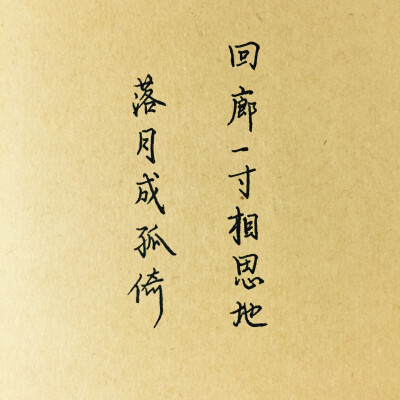 回廊一寸相思地
落月成孤倚